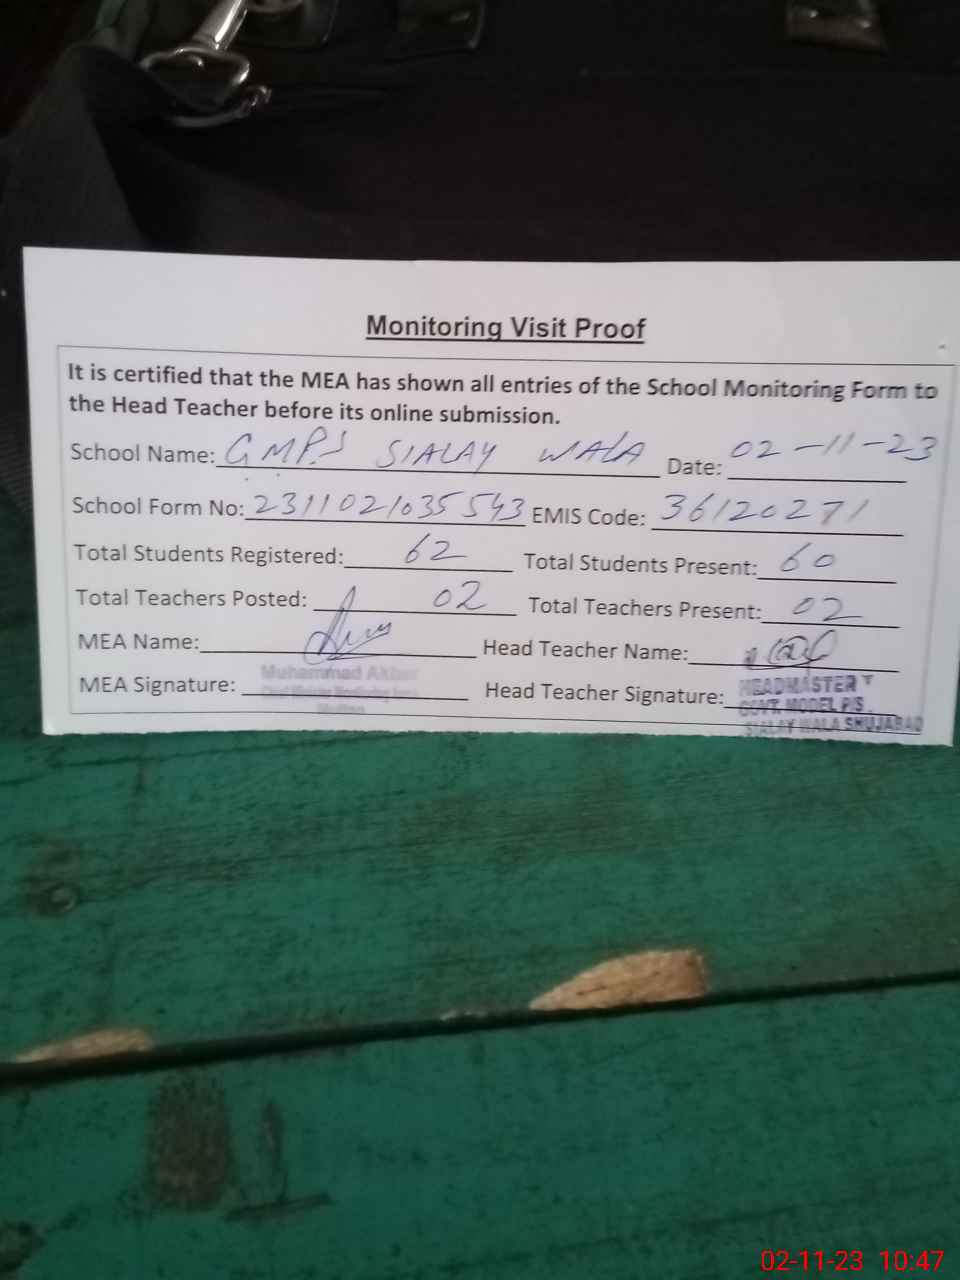 Monitoring Visit Proof
It is certified that the MEA has shown all entries of the School Monitoring Form to
the Head Teacher before its online submission.
School Name: GMPS SIALAY WALA Date: 02-11-23
School Form No: 2311021035543 EMIS Code: 36120271
Total Students Registered: 62 Total Students Present: 60
Total Teachers Posted: 02 Total Teachers Present: 02
MEA Name: Head Teacher Name:
Muhammad Akbar
MEA Signature: Head Teacher Signature:
HEADMASTER
GOVT. MODEL P/S
SIALAY WALA SHUJABAD
Multan
02-11-23 10:47